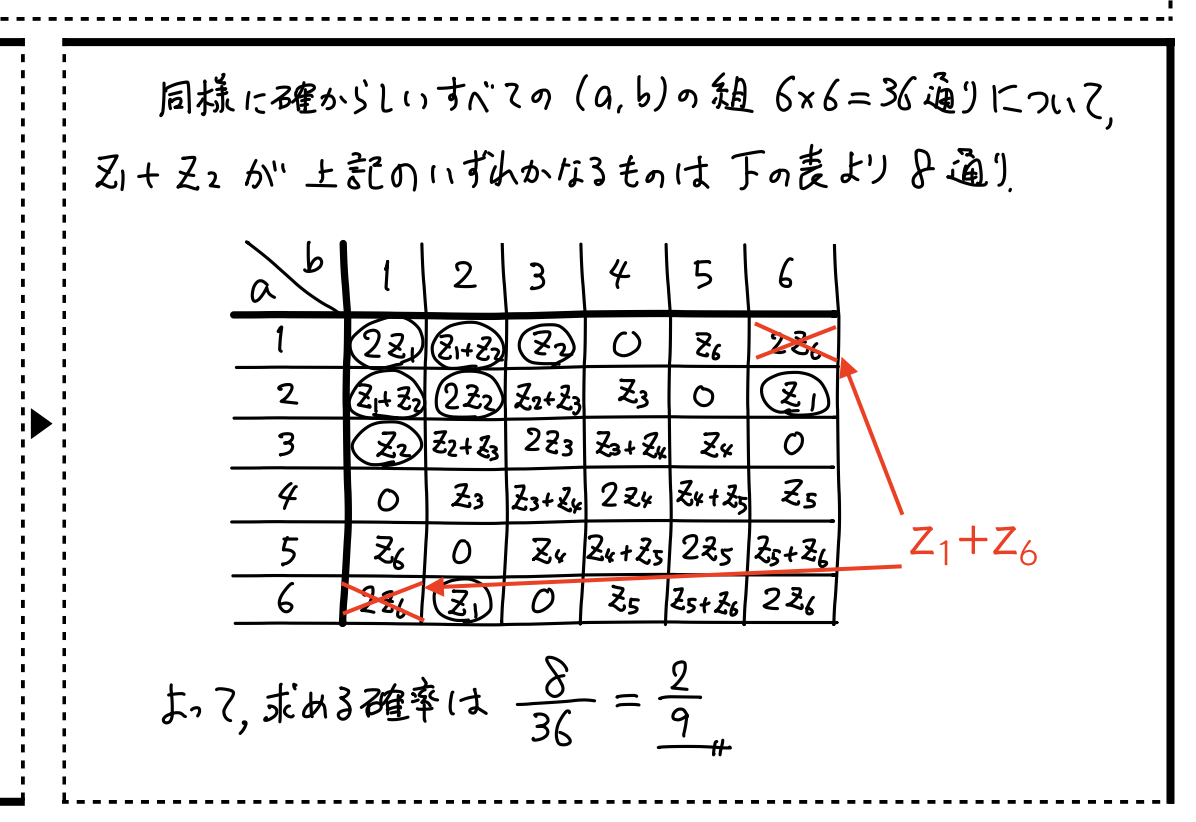 同様に確からしいすべての (a, b) の組 6×6=36通りについて,
z₁+z₂ が 上記のいずれかなるものは 下の表より 8通り.
a b 1 2 3 4 5 6
1 2z₁ z₁+z₂ z₂ 0 z₆ 2z₆
2 z₁+z₂ 2z₂ z₂+z₃ z₃ 0 z₁
3 z₂ z₂+z₃ 2z₃ z₃+z₄ z₄ 0
4 0 z₃ z₃+z₄ 2z₄ z₄+z₅ z₅
z₁+z₆
5 z₆ 0 z₄ z₄+z₅ 2z₅ z₅+z₆
6 2z₆ z₁ 0 z₅ z₅+z₆ 2z₆
よって, 求める確率は 8/36 = 2/9